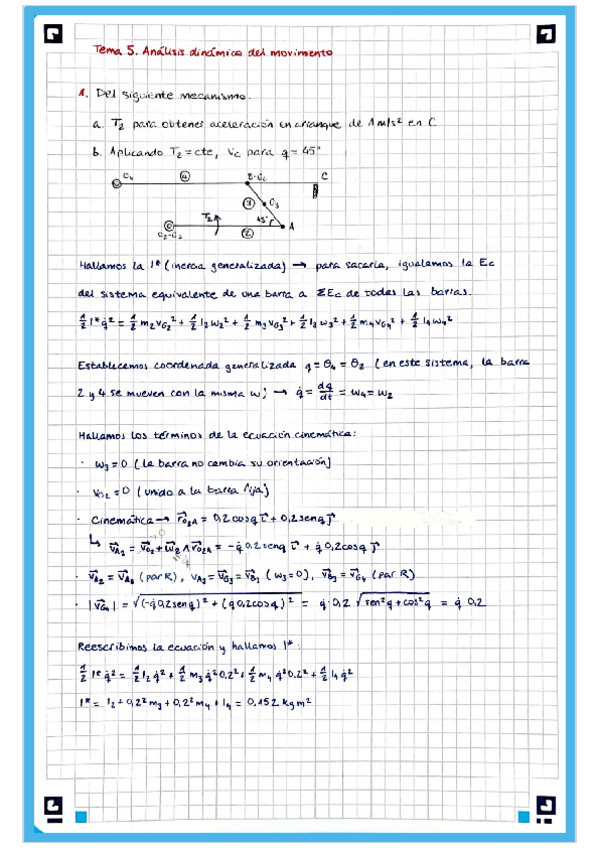 Tema 5. Análisis dinámico del movimiento
1. Del siguiente mecanismo.
a. T₂ para obtener aceleración en arranque de 1 m/s² en C
b. Aplicando T₂ = cte, v_C para q = 45°
G₄ ④ B-G₄ C
③ G₃
T₂ 45° A
O₂-G₂ ②
Hallamos la I* (inercia generalizada) → para sacarla, igualamos la Ec
del sistema equivalente de una barra a ΣEc de todas las barras.
½ I* q̇² = ½ m₂v_G₂² + ½ I₂w₂² + ½ m₃v_G₃² + ½ I₃w₃² + ½ m₄v_G₄² + ½ I₄w₄²
Establecemos coordenada generalizada q = θ₄ = θ₂ (en este sistema, la barra
2 y 4 se mueven con la misma w) → q̇ = dq/dt = w₄ = w₂
Hallamos los términos de la ecuación cinemática:
· w₃ = 0 (la barra no cambia su orientación)
· v_O₂ = 0 (unido a la barra fija)
· Cinemática → r⃗_O₂A = 0,2 cosq i⃗ + 0,2 senq j⃗
↳ v⃗_A₂ = v⃗_O₂ + w⃗₂ ∧ r⃗_O₂A = -q̇ 0,2 senq i⃗ + q̇ 0,2 cosq j⃗
· v⃗_A₂ = v⃗_A₃ (par R), v_A₃ = v⃗_G₃ = v⃗_B₃ (w₃ = 0), v⃗_B₃ = v⃗_G₄ (par R)
· |v⃗_G₄| = √((-q̇ 0,2 senq)² + (q̇ 0,2 cosq)²) = q̇ 0,2 √(sen²q + cos²q) = q̇ 0,2
Reescribimos la ecuación y hallamos I*:
½ I* q̇² = ½ I₂ q̇² + ½ m₃ q̇² 0,2² + ½ m₄ q̇² 0,2² + ½ I₄ q̇²
I* = I₂ + 0,2² m₃ + 0,2² m₄ + I₄ = 0,152 kg m²